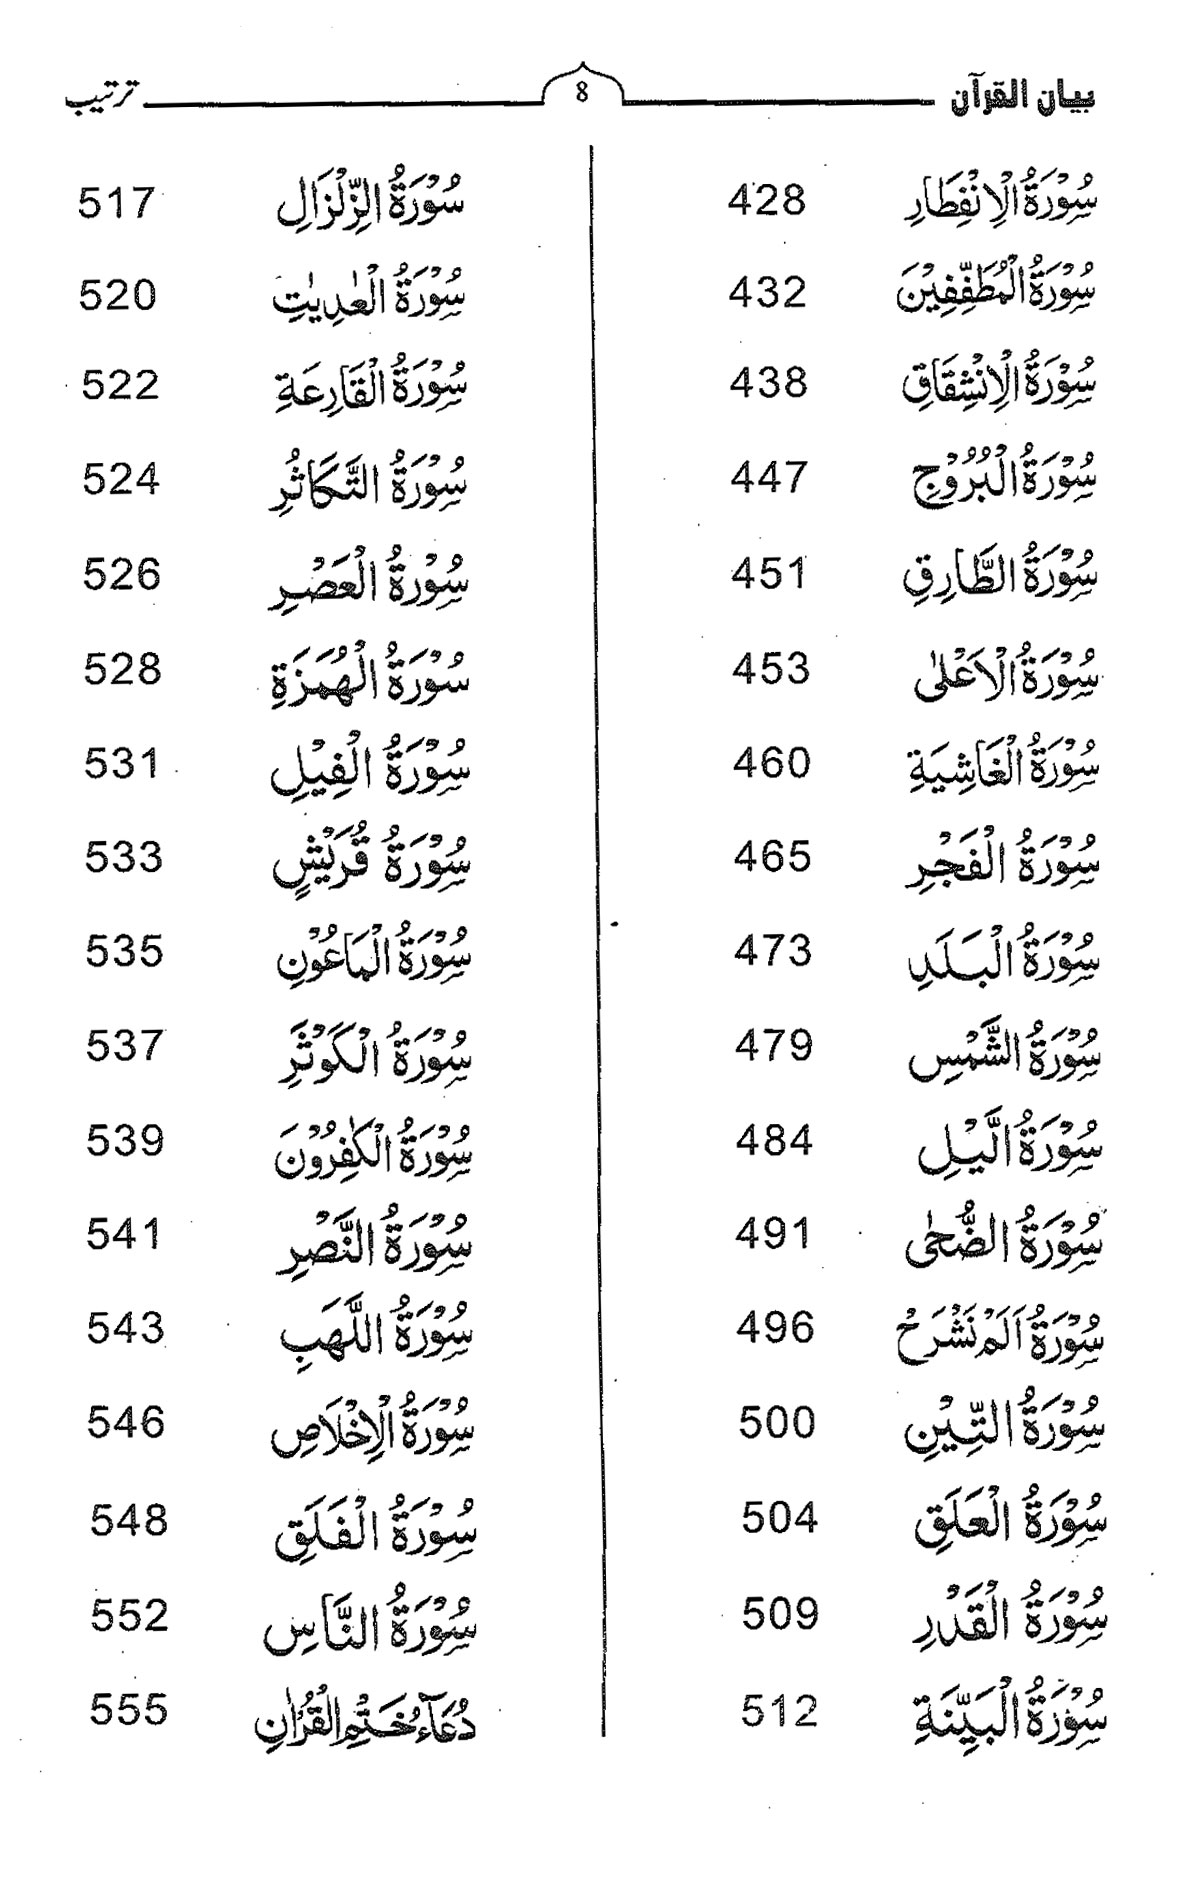 بيان القرآن 8 ترتیب
سُوْرَةُ الْاِنْفِطَارِ 428
سُوْرَةُ الْمُطَفِّفِيْنَ 432
سُوْرَةُ الْاِنْشِقَاقِ 438
سُوْرَةُ الْبُرُوْجِ 447
سُوْرَةُ الطَّارِقِ 451
سُوْرَةُ الْاَعْلٰى 453
سُوْرَةُ الْغَاشِيَةِ 460
سُوْرَةُ الْفَجْرِ 465
سُوْرَةُ الْبَلَدِ 473
سُوْرَةُ الشَّمْسِ 479
سُوْرَةُ الَّيْلِ 484
سُوْرَةُ الضُّحٰى 491
سُوْرَةُ اَلَمْ نَشْرَحْ 496
سُوْرَةُ التِّيْنِ 500
سُوْرَةُ الْعَلَقِ 504
سُوْرَةُ الْقَدْرِ 509
سُوْرَةُ الْبَيِّنَةِ 512
سُوْرَةُ الزِّلْزَالِ 517
سُوْرَةُ الْعٰدِيٰتِ 520
سُوْرَةُ الْقَارِعَةِ 522
سُوْرَةُ التَّكَاثُرِ 524
سُوْرَةُ الْعَصْرِ 526
سُوْرَةُ الْهُمَزَةِ 528
سُوْرَةُ الْفِيْلِ 531
سُوْرَةُ قُرَيْشٍ 533
سُوْرَةُ الْمَاعُوْنِ 535
سُوْرَةُ الْكَوْثَرِ 537
سُوْرَةُ الْكٰفِرُوْنَ 539
سُوْرَةُ النَّصْرِ 541
سُوْرَةُ اللَّهَبِ 543
سُوْرَةُ الْاِخْلَاصِ 546
سُوْرَةُ الْفَلَقِ 548
سُوْرَةُ النَّاسِ 552
دُعَآءُ خَتْمِ الْقُرْاٰنِ 555